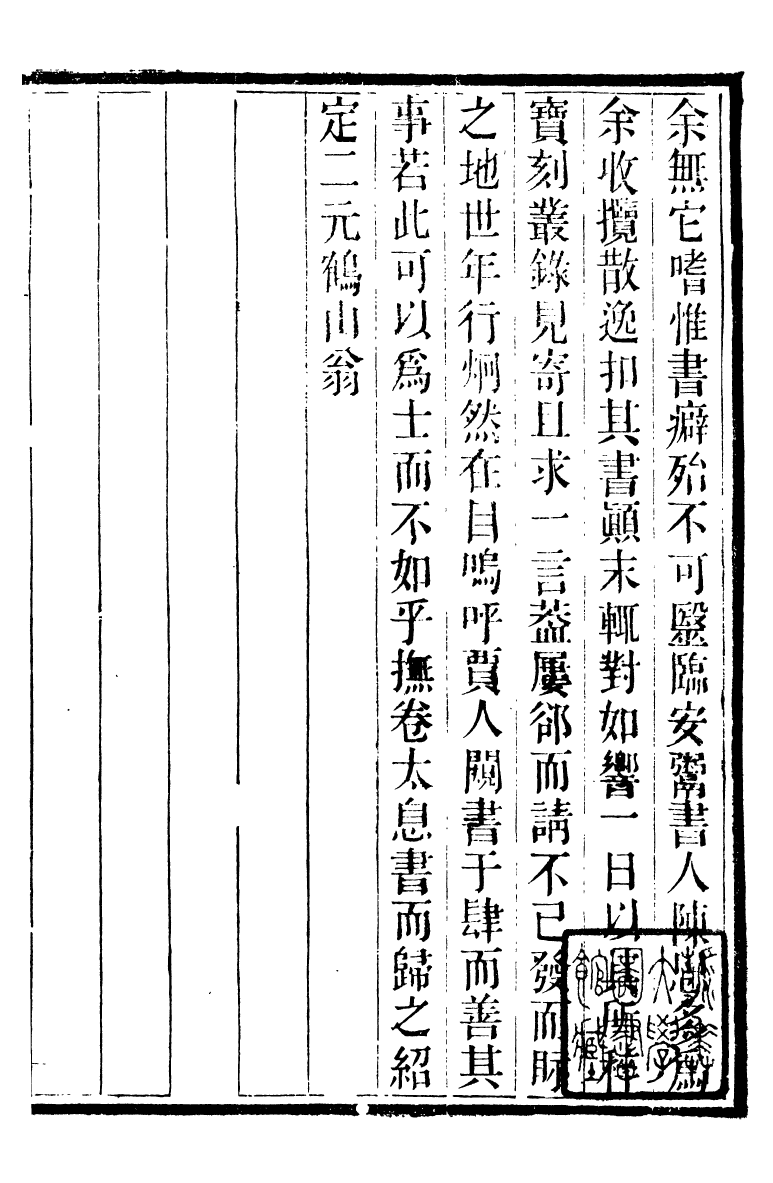 余無它嗜惟書癖殆不可毉臨安鬻書人陳思多爲
余收攬散逸扣其書顚末輒對如響一日以其所稡
寶刻叢錄見寄且求一言葢屢郤而請不已發而眎
之地世年行炯然在目嗚呼賈人闚書于肆而善其
事若此可以爲士而不如乎撫卷太息書而歸之紹
定二元鶴山翁
大學
館藏